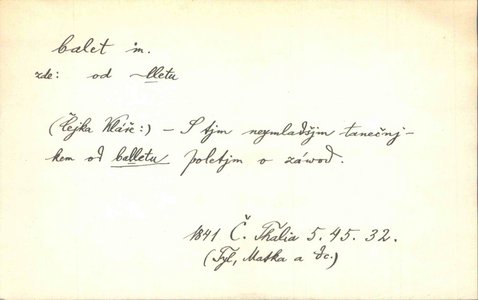 balet m.
zde: od –lletu
(Čejka Kláře:) – S tjm neymladšjm tanečnj-
kem od balletu poletjm o záwod.
1841 Č. Thalia 5. 45. 32.
(Tyl, Matka a dc.)